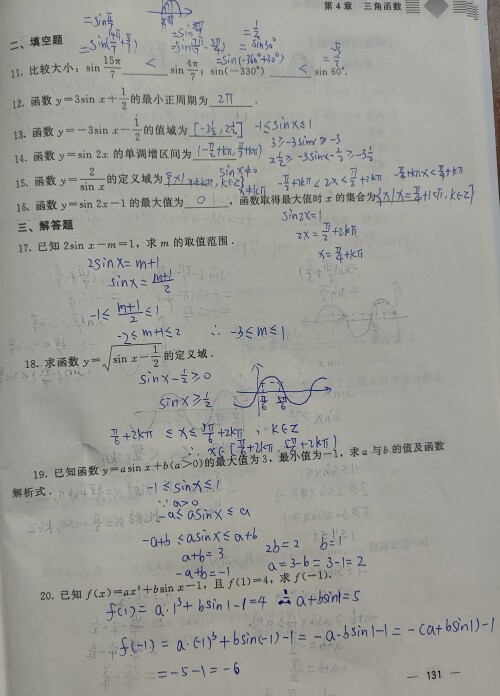 第 4 章　三角函数
二、填空题
11. 比较大小：sin 15π/7 < sin 4π/7；sin(−330°) < sin 60°.
=sin(−360°+30°)
=sin30°
=1/2
12. 函数 y=3sin x+1/2 的最小正周期为 2π .
13. 函数 y=−3sin x−1/2 的值域为 [−3½, 2½] . −1≤sinx≤1
3≥−3sinx≥−3
2½≥−3sinx−½≥−3½
14. 函数 y=sin 2x 的单调增区间为 (−π/4+kπ, π/4+kπ)
−π/2+2kπ<2x<π/2+2kπ −π/4+kπ<x<π/4+kπ
15. 函数 y=2/sin x 的定义域为 {x|x≠kπ, k∈Z} sinx≠0
x≠kπ
16. 函数 y=sin 2x−1 的最大值为 0 ，函数取得最大值时 x 的集合为 {x|x=π/4+kπ, k∈Z}
sin2x=1
2x=π/2+2kπ
x=π/4+kπ
三、解答题
17. 已知 2sin x−m=1，求 m 的取值范围.
2sinx=m+1
sinx=(m+1)/2
−1≤(m+1)/2≤1
−2≤m+1≤2 ∴ −3≤m≤1
18. 求函数 y=√(sin x−1/2) 的定义域.
sinx−½≥0
sinx≥½
π/6 5π/6
π/6+2kπ≤x≤5π/6+2kπ k∈Z
∴ x∈[π/6+2kπ, 5π/6+2kπ]
19. 已知函数 y=a sin x+b(a>0)的最大值为 3，最小值为−1，求 a 与 b 的值及函数
解析式.
−1≤sinx≤1
∵ a>0
−a≤asinx≤a
−a+b≤asinx≤a+b
a+b=3 2b=2 b=1
−a+b=−1 a=3−b=3−1=2
20. 已知 f(x)=ax³+bsin x−1，且 f(1)=4，求 f(−1).
f(1)=a·1³+bsin1−1=4 ∴a+bsin1=5
f(−1)=a·(−1)³+bsin(−1)−1=−a−bsin1−1=−(a+bsin1)−1
=−5−1=−6
— 131 —